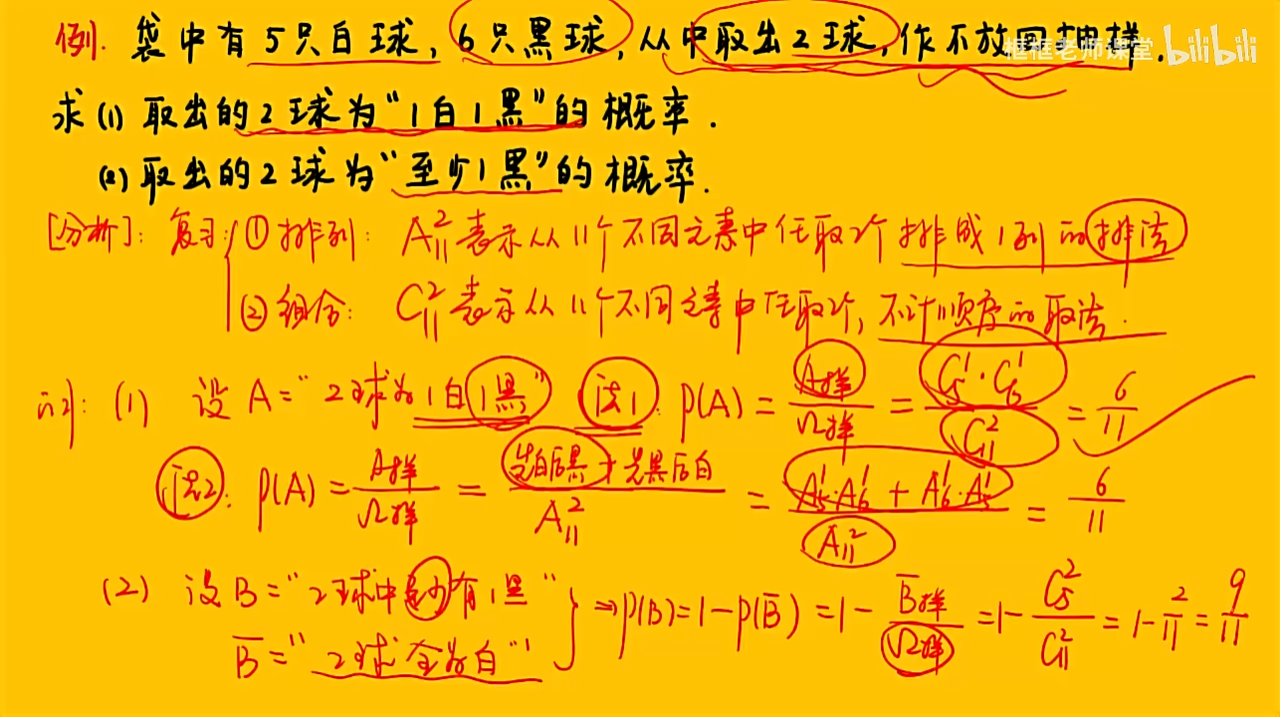 例. 袋中有5只白球, 6只黑球, 从中取出2球, 作不放回抽样.
框框老师课堂 bilibili
求(1) 取出的2球为“1白1黑”的概率.
(2) 取出的2球为“至少1黑”的概率.
[分析]: 复习: ①排列: A₁₁² 表示从11个不同元素中任取2个排成1列的排法
②组合: C₁₁² 表示从11个不同元素中任取2个, 不计顺序的取法.
解: (1) 设A=“2球为1白1黑” 法1: P(A) = A样/Ω样 = C₅¹·C₆¹/C₁₁² = 6/11
法2: P(A) = A样/Ω样 = 先白后黑+先黑后白/A₁₁² = A₅¹·A₆¹ + A₆¹·A₅¹/A₁₁² = 6/11
(2) 设B=“2球中至少有1黑”
B̄=“2球全为白” } ⇒ P(B)=1-P(B̄) =1- B̄样/Ω样 =1- C₅²/C₁₁² = 1- 2/11 = 9/11